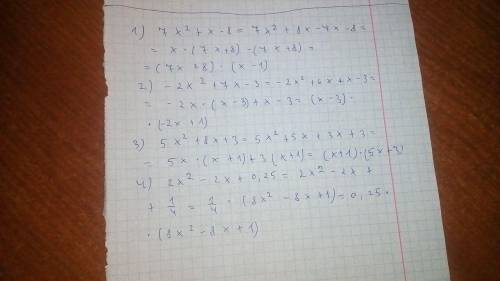 1) 7x² + x - 8 = 7x² + 8x - 7x - 8 =
= x · (7x + 8) - (7x + 8) =
= (7x + 8) · (x - 1)
2) - 2x² + 7x - 3 = - 2x² + 6x + x - 3 =
= - 2x · (x - 3) + x - 3 = (x - 3) ·
· (-2x + 1)
3) 5x² + 8x + 3 = 5x² + 5x + 3x + 3 =
= 5x · (x + 1) + 3(x + 1) = (x + 1) · (5x + 3)
4) 2x² - 2x + 0,25 = 2x² - 2x +
+ 1/4 = 1/4 · (8x² - 8x + 1) = 0,25 ·
· (8x² - 8x + 1)